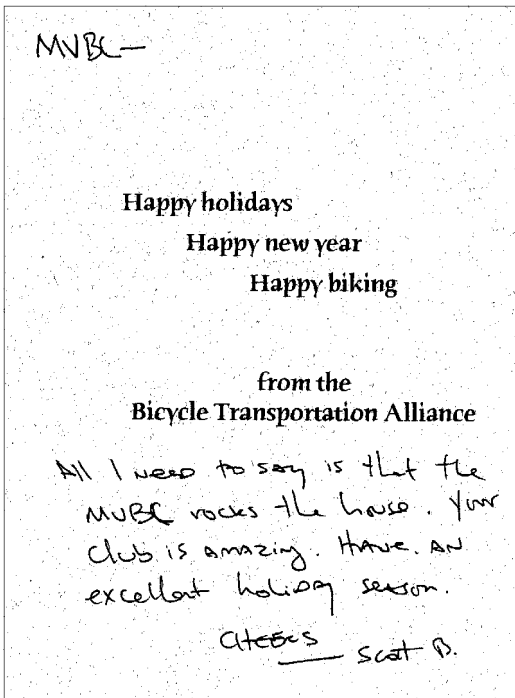 MVBC—
Happy holidays
Happy new year
Happy biking
from the
Bicycle Transportation Alliance
All I need to say is that the
MVBC rocks the house. Your
club is amazing. Have an
excellent holiday season.
Cheers
— Scott B.